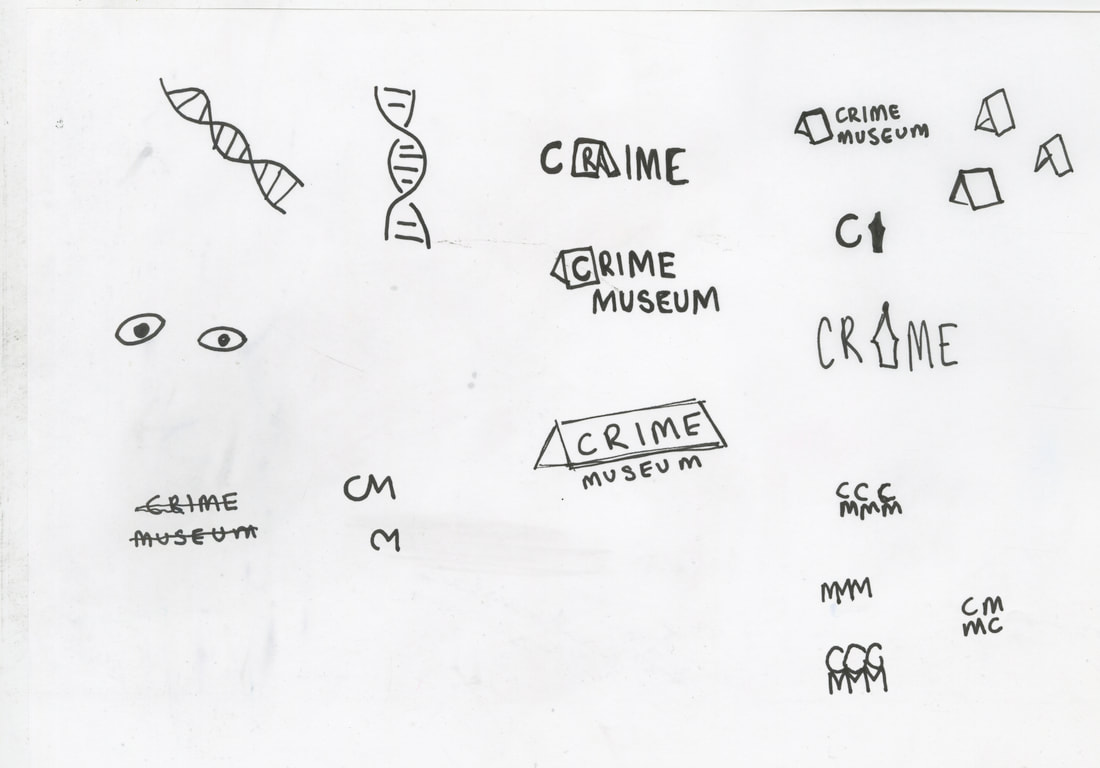 CRAIME
CRIME
MUSEUM
CRIME
MUSEUM
C
CR ME
CRIME
MUSEUM
CRIME
MUSEUM
CM
CM
CCC
MMM
MMM
CM
MC
CCC
MMM